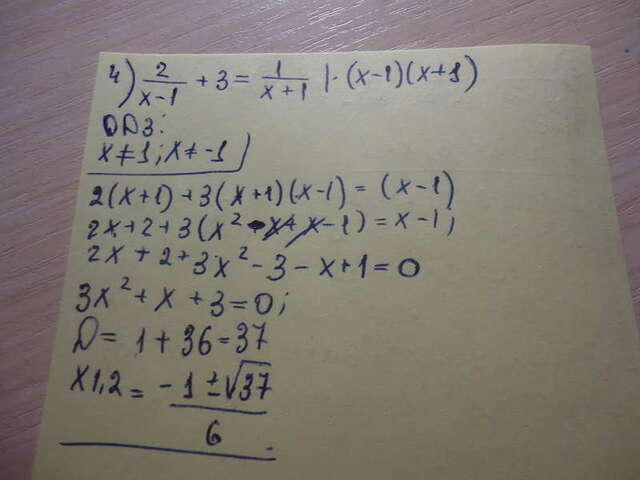 4) 2/(x-1) + 3 = 1/(x+1) | · (x-1)(x+1)
ОДЗ:
x≠1; x≠-1
2(x+1)+3(x+1)(x-1) = (x-1)
2x+2+3(x²-x+x-1) = x-1;
2x+2+3x²-3-x+1=0
3x²+x+3=0;
D= 1+36=37
x1,2 = (-1±√37)/6